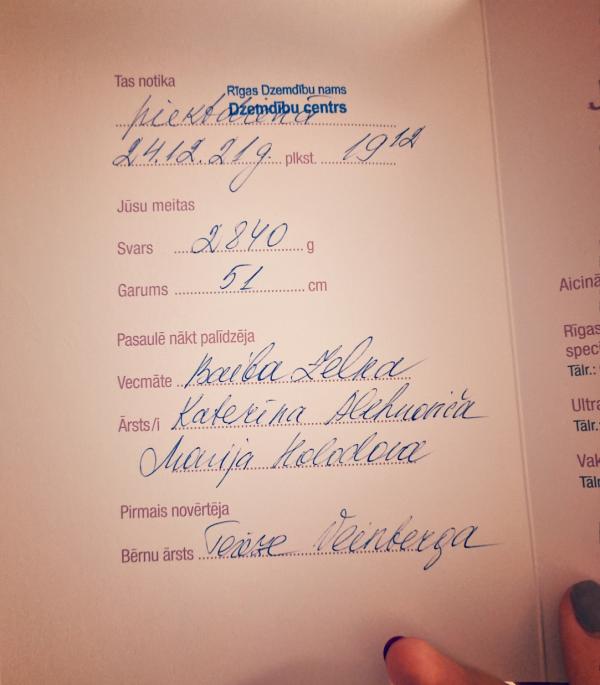 Tas notika
Rīgas Dzemdību nams
Dzemdību centrs
piektdienā
24.12.21g. plkst. 19 12
Jūsu meitas
Svars 2840 g
Garums 51 cm
Pasaulē nākt palīdzēja
Vecmāte Baiba Zelna
Ārsts/i Katerīna Alehnoviča
Marija Holodova
Pirmais novērtēja
Bērnu ārsts Veinberga
Aicinā
Rīgas
speci
Tālr.:
Ultra
Tālr.
Vak
Tālr